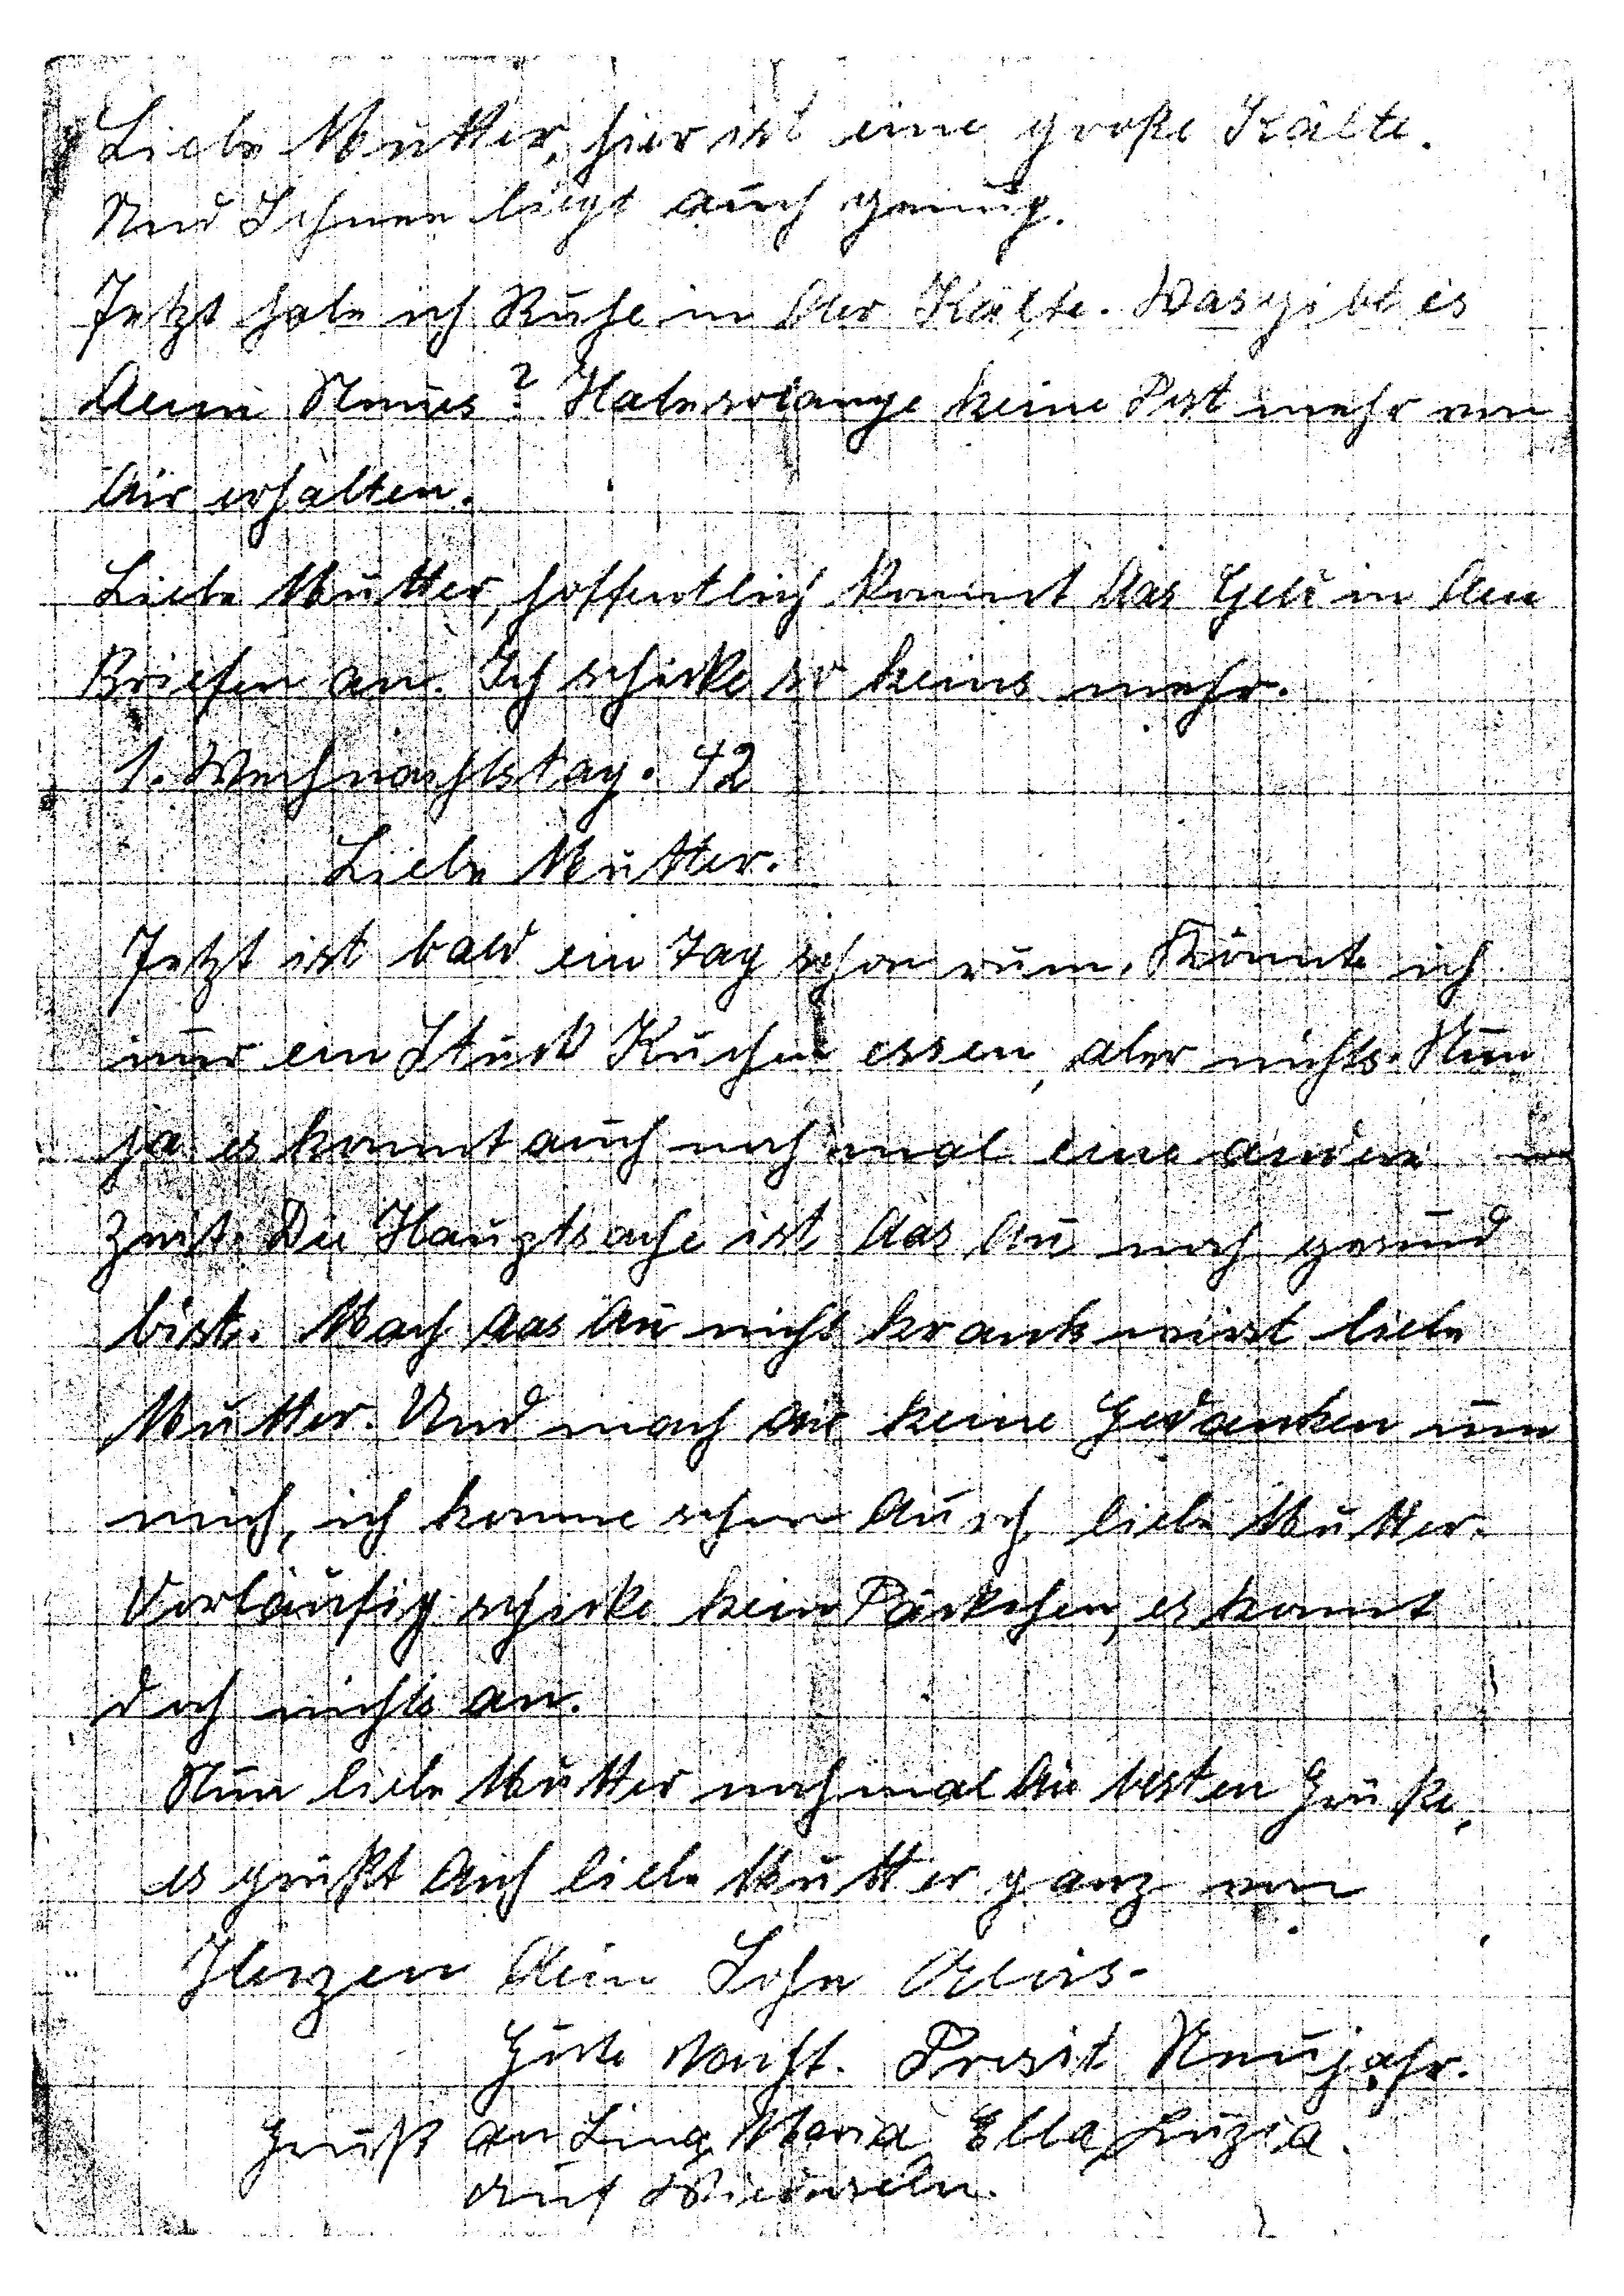 Liebe Mutter, hier ist eine große Kälte.
Und Schnee liegt auch genug.
Jetzt habe ich Ruhe in der Kälte. Was gibt es
denn Neues? Habe solange keine Post mehr von
dir erhalten.
Liebe Mutter, hoffentlich kommt das Geld in den
Briefen an. Ich schicke so keins mehr.
1. Weihnachtstag. 42
Liebe Mutter.
Jetzt ist bald ein Tag schon rum. Könnte ich
nur ein Stück Kuchen essen, aber nichts. Nun
ja es kommt auch noch mal eine andere
Zeit. Die Hauptsache ist, das du noch gesund
bist. Mach das du nicht krank wirst liebe
Mutter. Und mach dir keine Gedanken um
mich, ich komme schon durch liebe Mutter.
Vorläufig schicke kein Päckchen, es kommt
doch nichts an.
Nun liebe Mutter nochmal die besten Grüße,
es grüßt dich liebe Mutter ganz von
Herzen dein Sohn Alois.
Gute Nacht. Prosit Neujahr.
Gruß an Lina, Maria, Ella, Luzia.
Auf Wiedersehn.